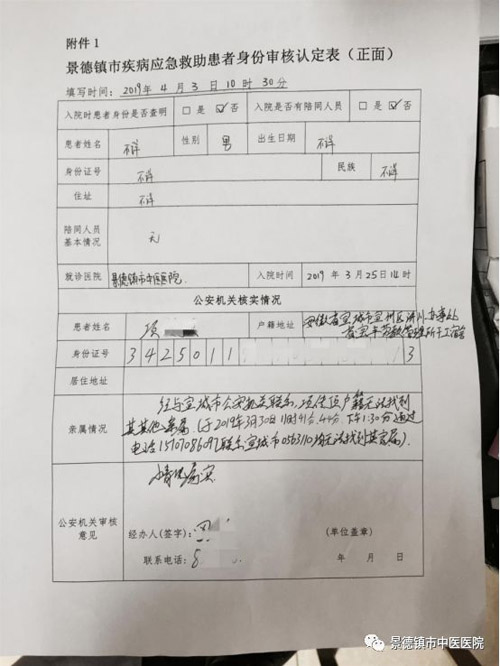 附件1
景德镇市疾病应急救助患者身份审核认定表（正面）
填写时间：2019年 4月 3日 10时 30分
入院时患者身份是否查明 □是 ☑否 入院是否有陪同人员 □是 ☑否
患者姓名 不详 性别 男 出生日期 不详
身份证号 不详 民族 不详
住址 不详
陪同人员
基本情况 无
就诊医院 景德镇市中医医院 入院时间 2019年 3月 25日 14时
公安机关核实情况
患者姓名 项 户籍地址 安徽省宣城市宣州区济川办事处
身份证号 3425011 3
居住地址
亲属情况
经与宣城市公安机关联系，
其其他亲属（于2019年3月30日11时41分、44分、下午1:30分通过
电话15107086097联系宣城市0563110均无法找到其家属）
公安机关审核
意见
情况属实
经办人(签字)： (单位盖章)
联系电话： 年 月 日
景德镇市中医医院